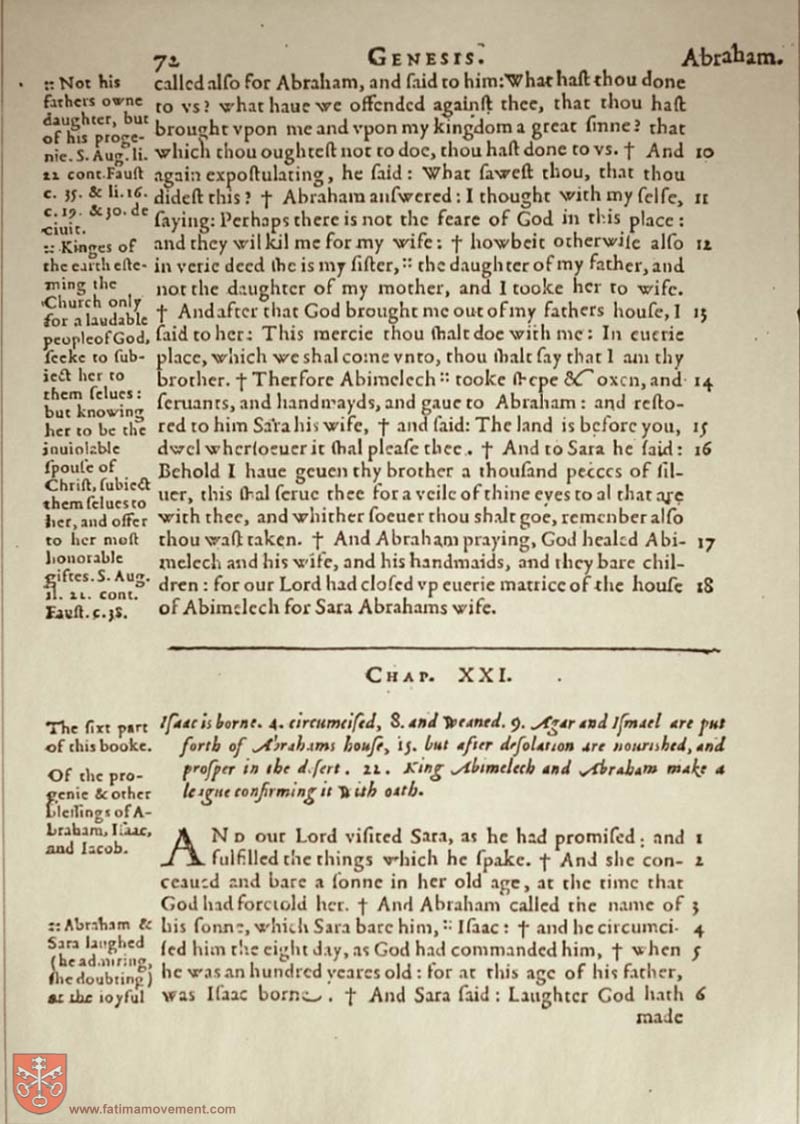 72 GENESIS. Abraham.
:: Not his
fathers owne
daughter, but
of his proge-
nie. S. Aug. li.
22 cont. Fauſt
c. 35. & li. 16.
c. 19. & 30. de
ciuit.
:: Kinges of
the earth eſte-
ming the
Church only
for a laudable
people of God,
ſeeke to ſub-
iect her to
them ſelues:
but knowing
her to be the
inuiolable
ſpouſe of
Chriſt, ſubiect
them ſelues to
her, and offer
to her moſt
honorable
giftes. S. Aug.
li. 22. cont.
Fauſt. c. 38.
called alſo for Abraham, and ſaid to him: What haſt thou done
to vs? what haue we offended againſt thee, that thou haſt
brought vpon me and vpon my kingdom a great ſinne? that
which thou oughteſt not to doe, thou haſt done to vs. † And 10
again expoſtulating, he ſaid: What ſaweſt thou, that thou
dideſt this? † Abraham anſwered: I thought with my ſelfe, 11
ſaying: Perhaps there is not the feare of God in this place:
and they wil kil me for my wife: † howbeit otherwiſe alſo 12
in verie deed ſhe is my ſiſter, :: the daughter of my father, and
not the daughter of my mother, and I tooke her to wife.
† And after that God brought me out of my fathers houſe, I 13
ſaid to her: This mercie thou ſhalt doe with me: In euerie
place, which we ſhal come vnto, thou ſhalt ſay that I am thy
brother. † Therfore Abimelech :: tooke ſheepe & oxen, and 14
ſeruants, and handmayds, and gaue to Abraham: and reſto-
red to him Sara his wife, † and ſaid: The land is before you, 15
dwel wherſoeuer it ſhal pleaſe thee. † And to Sara he ſaid: 16
Behold I haue geuen thy brother a thouſand peeces of ſil-
uer, this ſhal ſerue thee for a veile of thine eyes to al that are
with thee, and whither ſoeuer thou shalt goe, remenber alſo
thou waſt taken. † And Abraham praying, God healed Abi- 17
melech and his wife, and his handmaids, and they bare chil-
dren: for our Lord had cloſed vp euerie matrice of the houſe 18
of Abimelech for Sara Abrahams wife.
CHAP. XXI.
The ſixt part
of this booke.
Of the pro-
genie & other
bleſſings of A-
braham, Iſaac,
and Iacob.
:: Abraham &
Sara laughed
(he admiring,
ſhe doubting)
at the ioyful
Iſaac is borne. 4. circumciſed, 8. and weaned. 9. Agar and Iſmael are put
forth of Abrahams houſe, 15. but after deſolation are nouriſhed, and
proſper in the deſert. 22. King Abimelech and Abraham make a
league confirming it with oath.
AND our Lord viſited Sara, as he had promiſed: and 1
fulfilled the things which he ſpake. † And she con- 2
ceaued and bare a ſonne in her old age, at the time that
God had foretold her. † And Abraham called the name of 3
his ſonne, which Sara bare him, :: Iſaac: † and he circumci- 4
ſed him the eight day, as God had commanded him, † when 5
he was an hundred yeares old: for at this age of his father,
was Iſaac borne. † And Sara ſaid: Laughter God hath 6
made
www.fatimamovement.com